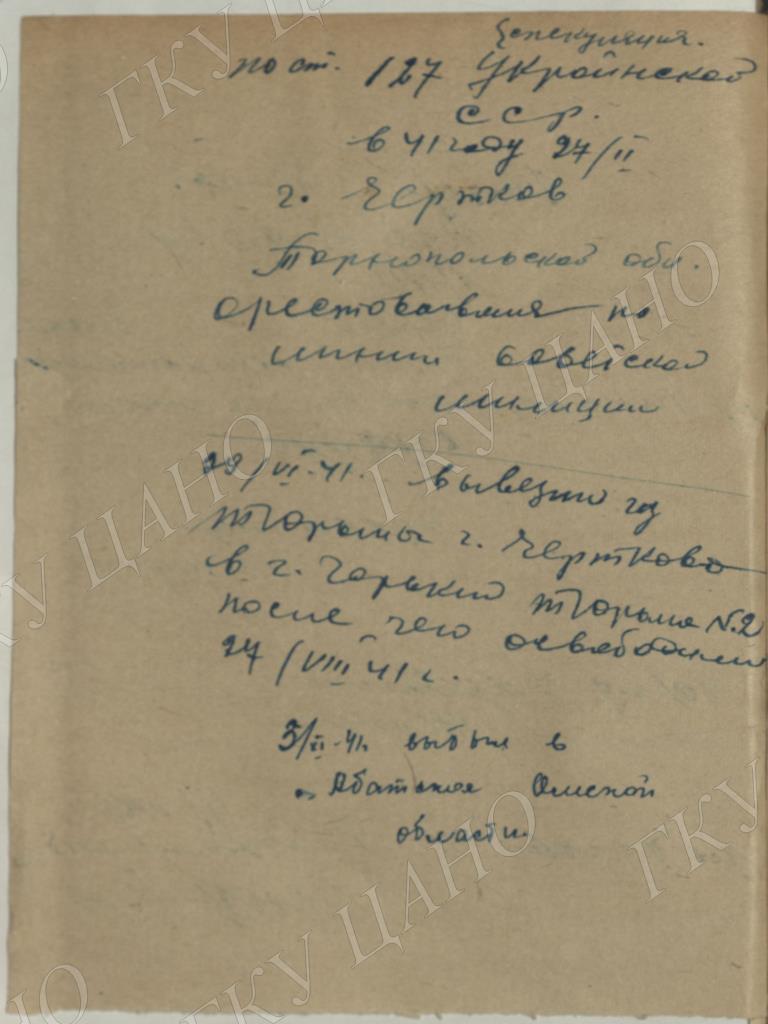 Спекуляция.
по ст. 127 Украинской
ССР.
в 41 году 27/II
г. Чертков
Тарнопольской обл.
арестованная по
линии Советской
милиции
29/VI-41. вывезли из
тюрьмы г. Чертково
в г. Горький тюрьма №2
после чего освободили
27/VIII 41 г.
5/XI-41. выбыл в
с. Абатское Омской
области.
ГКУ ЦАНО
ГКУ ЦАНО
ГКУ ЦАНО
ГКУ ЦАНО
ГКУ